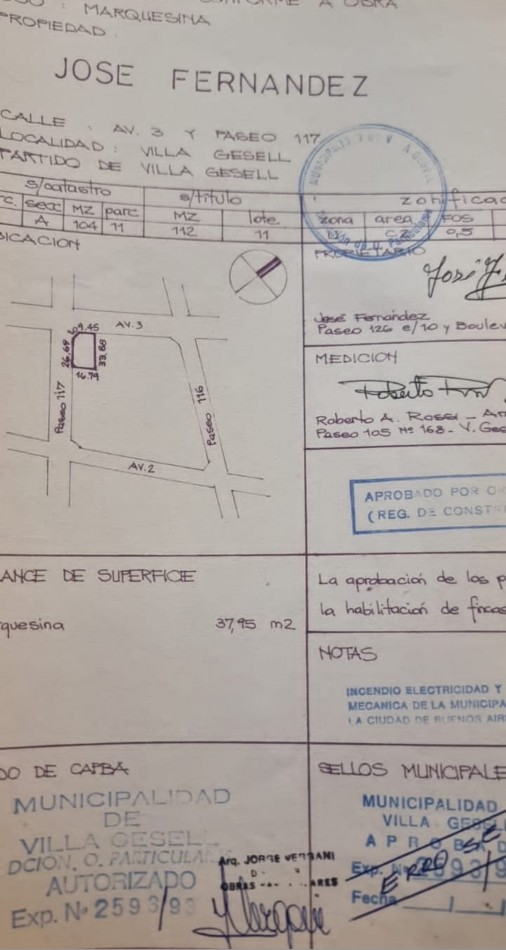 : MARQUESINA
CONFORME A OBRA
PROPIEDAD
JOSE FERNANDEZ
CALLE : AV. 3 Y PASEO 117
LOCALIDAD : VILLA GESELL
PARTIDO DE VILLA GESELL
s/catastro s/título zonificac
rc. secc MZ parc MZ lote zona area FOS
A 104 11 112 11 C2 0,5
BICACION
PROPIETARIO
José Fernández
Paseo 126 e/10 y Boulev
MEDICION
Roberto A. Rossi -
Paseo 105 Nº 168 - V. Ges
AV. 3
9.45
26.69
33.68
16.79
Paseo 117
Paseo 116
AV. 2
APROBADO POR
(REG. DE CONST
LANCE DE SUPERFICIE
rquesina 37,95 m2
La aprobación de los p
la habilitación de fincas
NOTAS
INCENDIO ELECTRICIDAD Y
MECANICA DE LA MUNICIPA
LA CIUDAD DE BUENOS AIR
DO DE CAPBA
MUNICIPALIDAD
DE
VILLA GESELL
DCION. O. PARTICULA
AUTORIZADO
Exp. Nº 2593/93
Arq. JORGE
OBRAS ARES
SELLOS MUNICIPALE
MUNICIPALIDAD
VILLA GESE
APROBAD
Exp. Nº 2593/9
Fecha